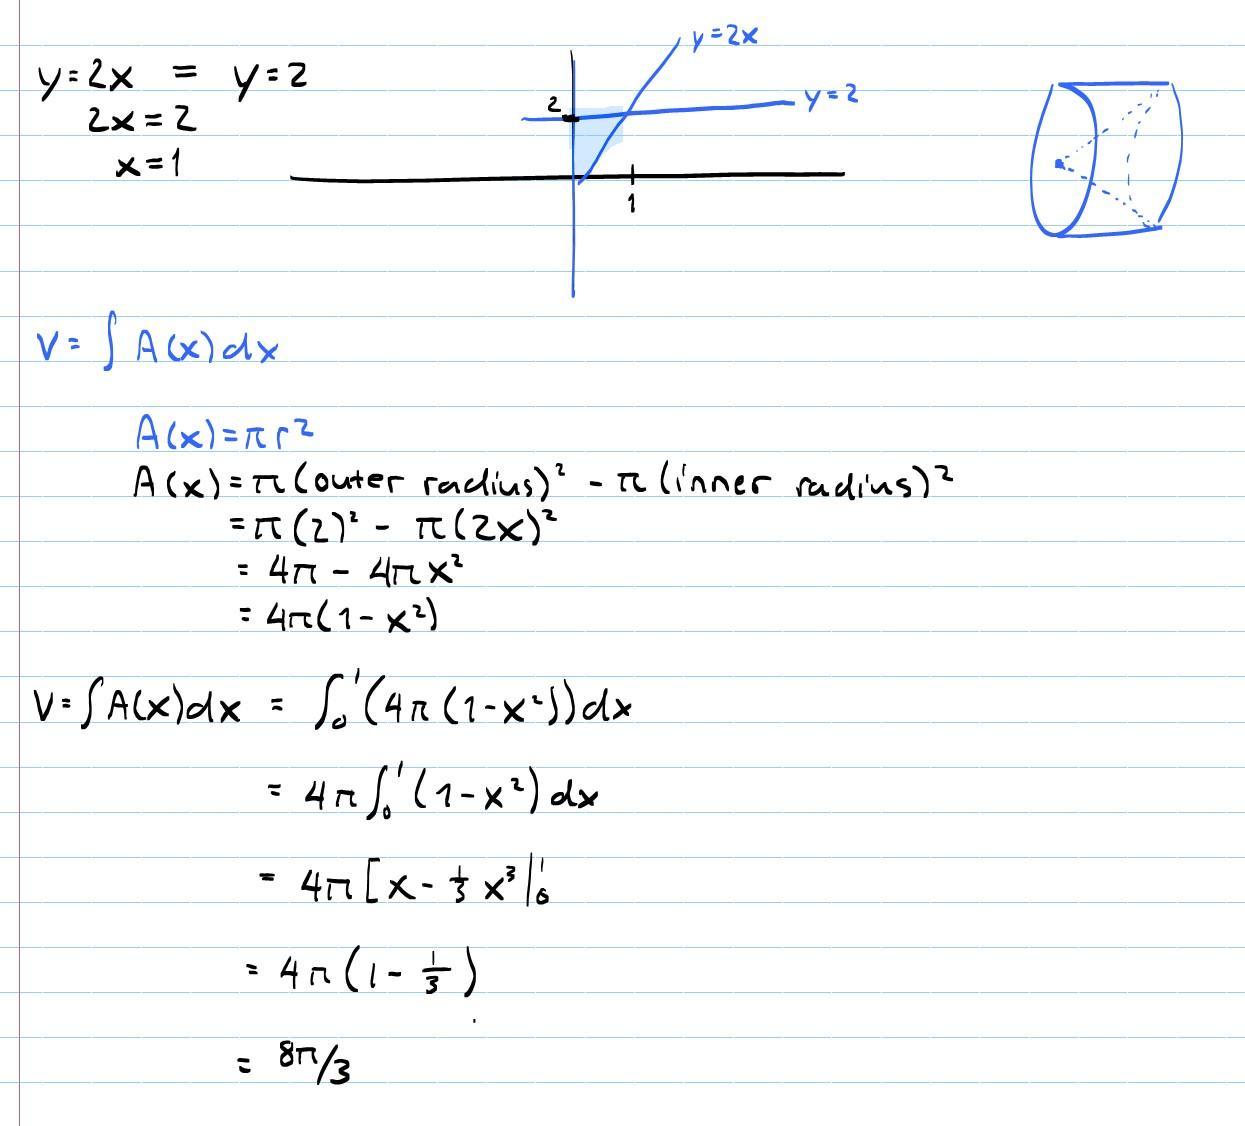 y=2x = y=2
2x=2
x=1
y=2x
2
y=2
1
V= ∫ A(x)dx
A(x)=πr²
A(x)=π(outer radius)² - π(inner radius)²
=π(2)² - π(2x)²
= 4π - 4πx²
= 4π(1-x²)
V=∫A(x)dx = ∫₀¹(4π(1-x²))dx
= 4π∫₀¹(1-x²)dx
= 4π[x-⅓x³|₀¹
= 4π(1-⅓)
= 8π/3